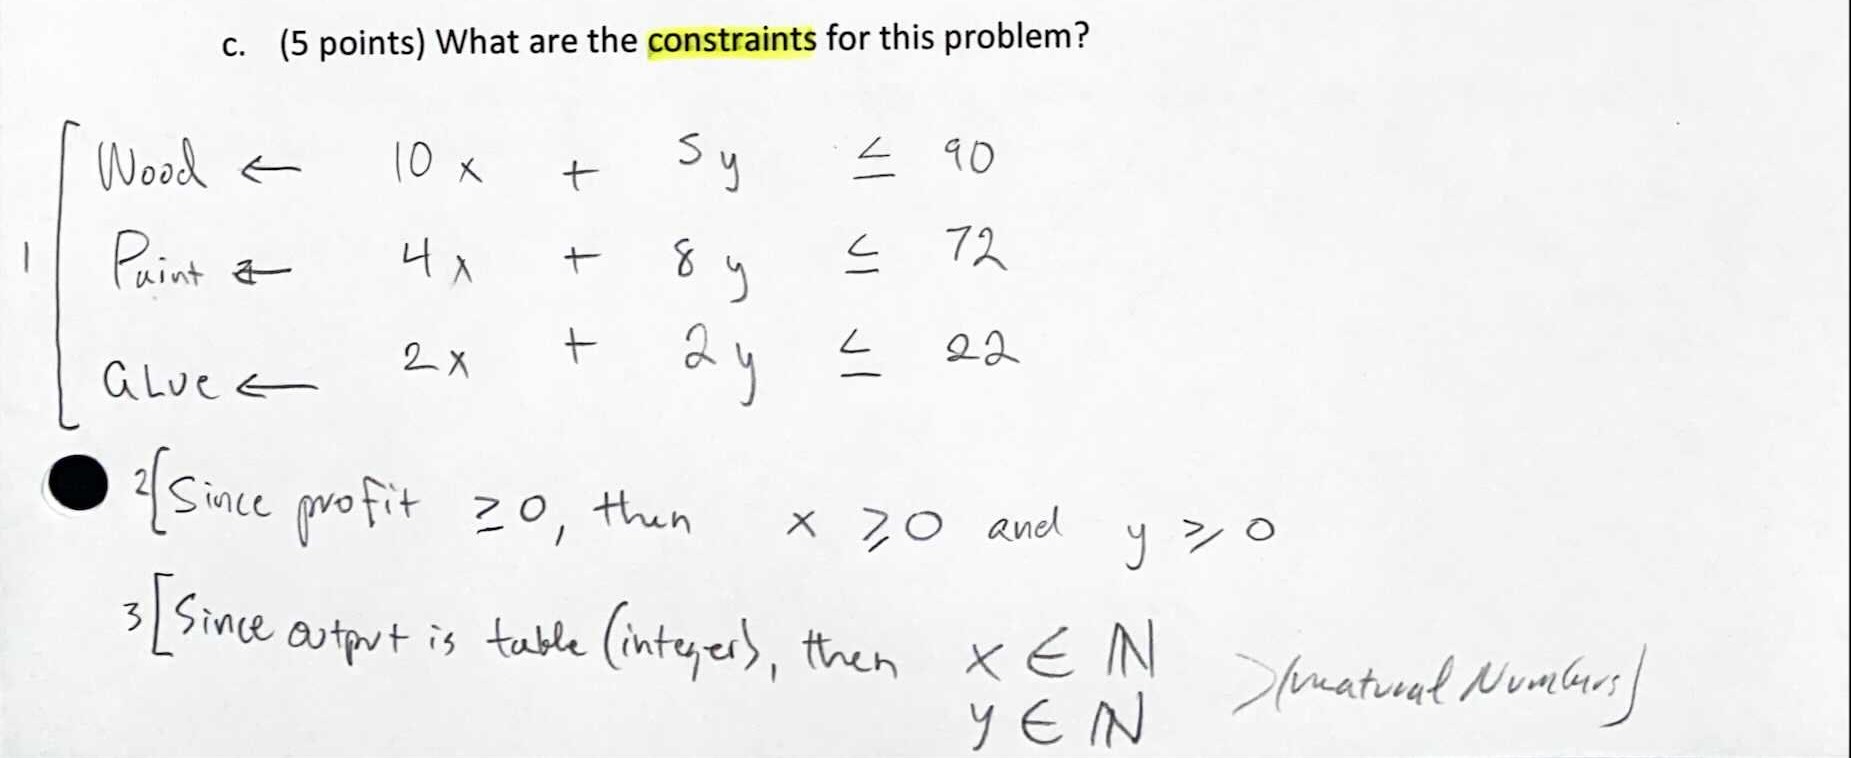 c. (5 points) What are the constraints for this problem?
Wood ← 10 x + 5 y ≤ 90
1
Paint ← 4 x + 8 y ≤ 72
GLUE ← 2 x + 2 y ≤ 22
2 [ Since profit ≥ 0, then x ≥ 0 and y ≥ 0
3 [ Since output is table (integer), then x ∈ ℕ
y ∈ ℕ
> (natural Numbers)